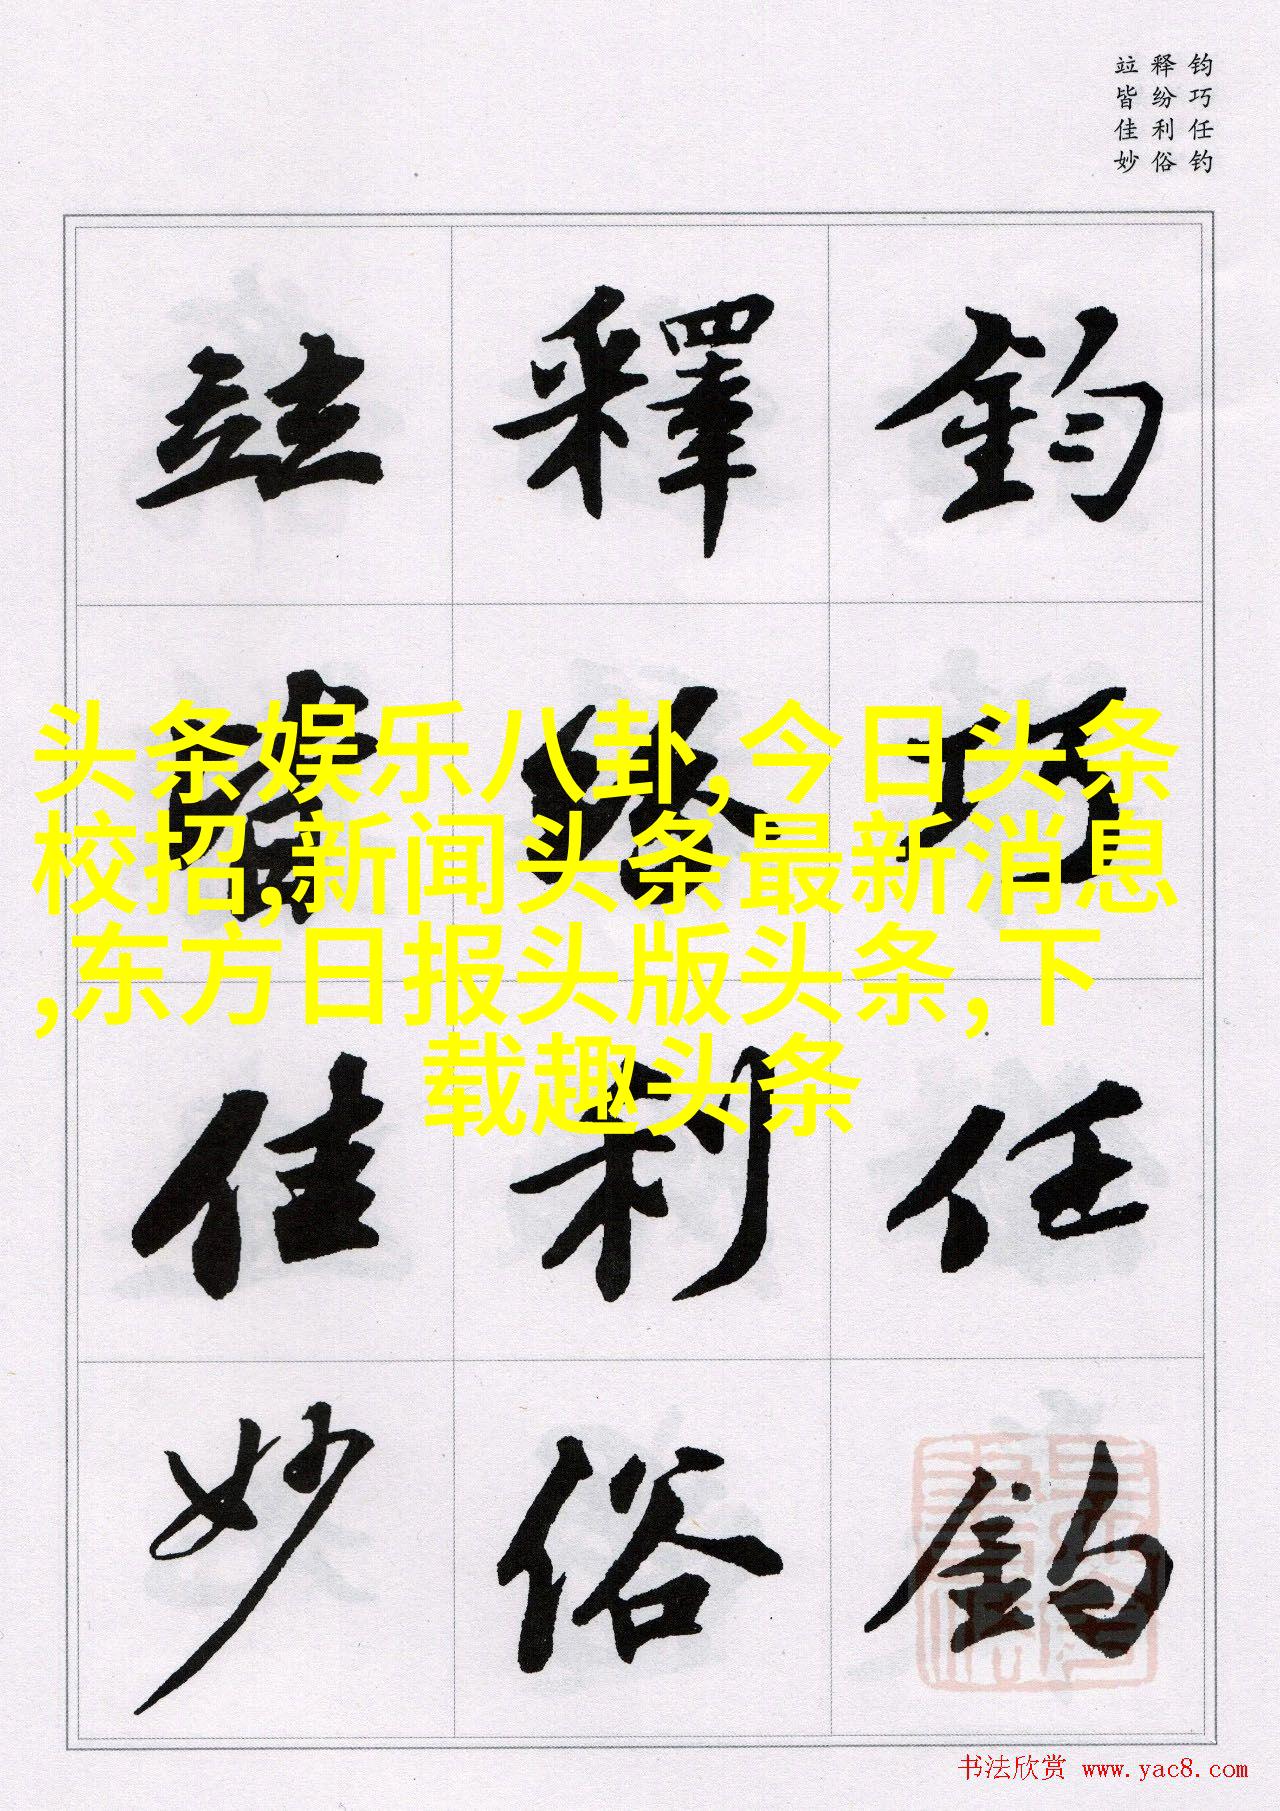 钧巧任钓
释纷利俗
竝皆佳妙
鈞巧任釣
釋紛利俗
竝皆佳妙
头条娱乐八卦,今日头条
校招,新闻头条最新消息
,东方日报头版头条,下
载趣头条
书法欣赏 www.yac8.com